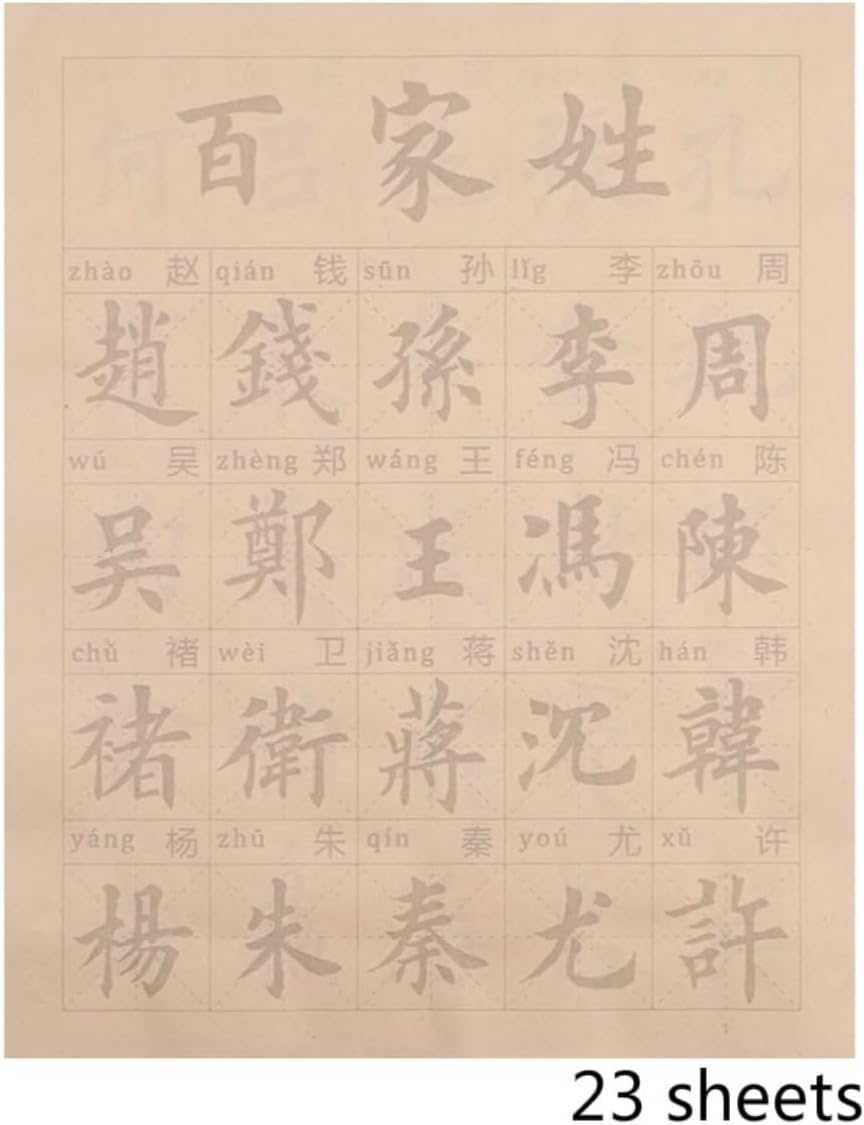 百家姓
zhào 赵 qián 钱 sūn 孙 lǐg 李 zhōu 周
趙 錢 孫 李 周
wú 吴 zhèng 郑 wáng 王 féng 冯 chén 陈
吴 鄭 王 馮 陳
chǔ 褚 wèi 卫 jiǎng 蒋 shěn 沈 hán 韩
褚 衛 蔣 沉 韓
yáng 杨 zhū 朱 qín 秦 yoú 尤 xǔ 许
楊 朱 秦 尤 許
1
23 sheets